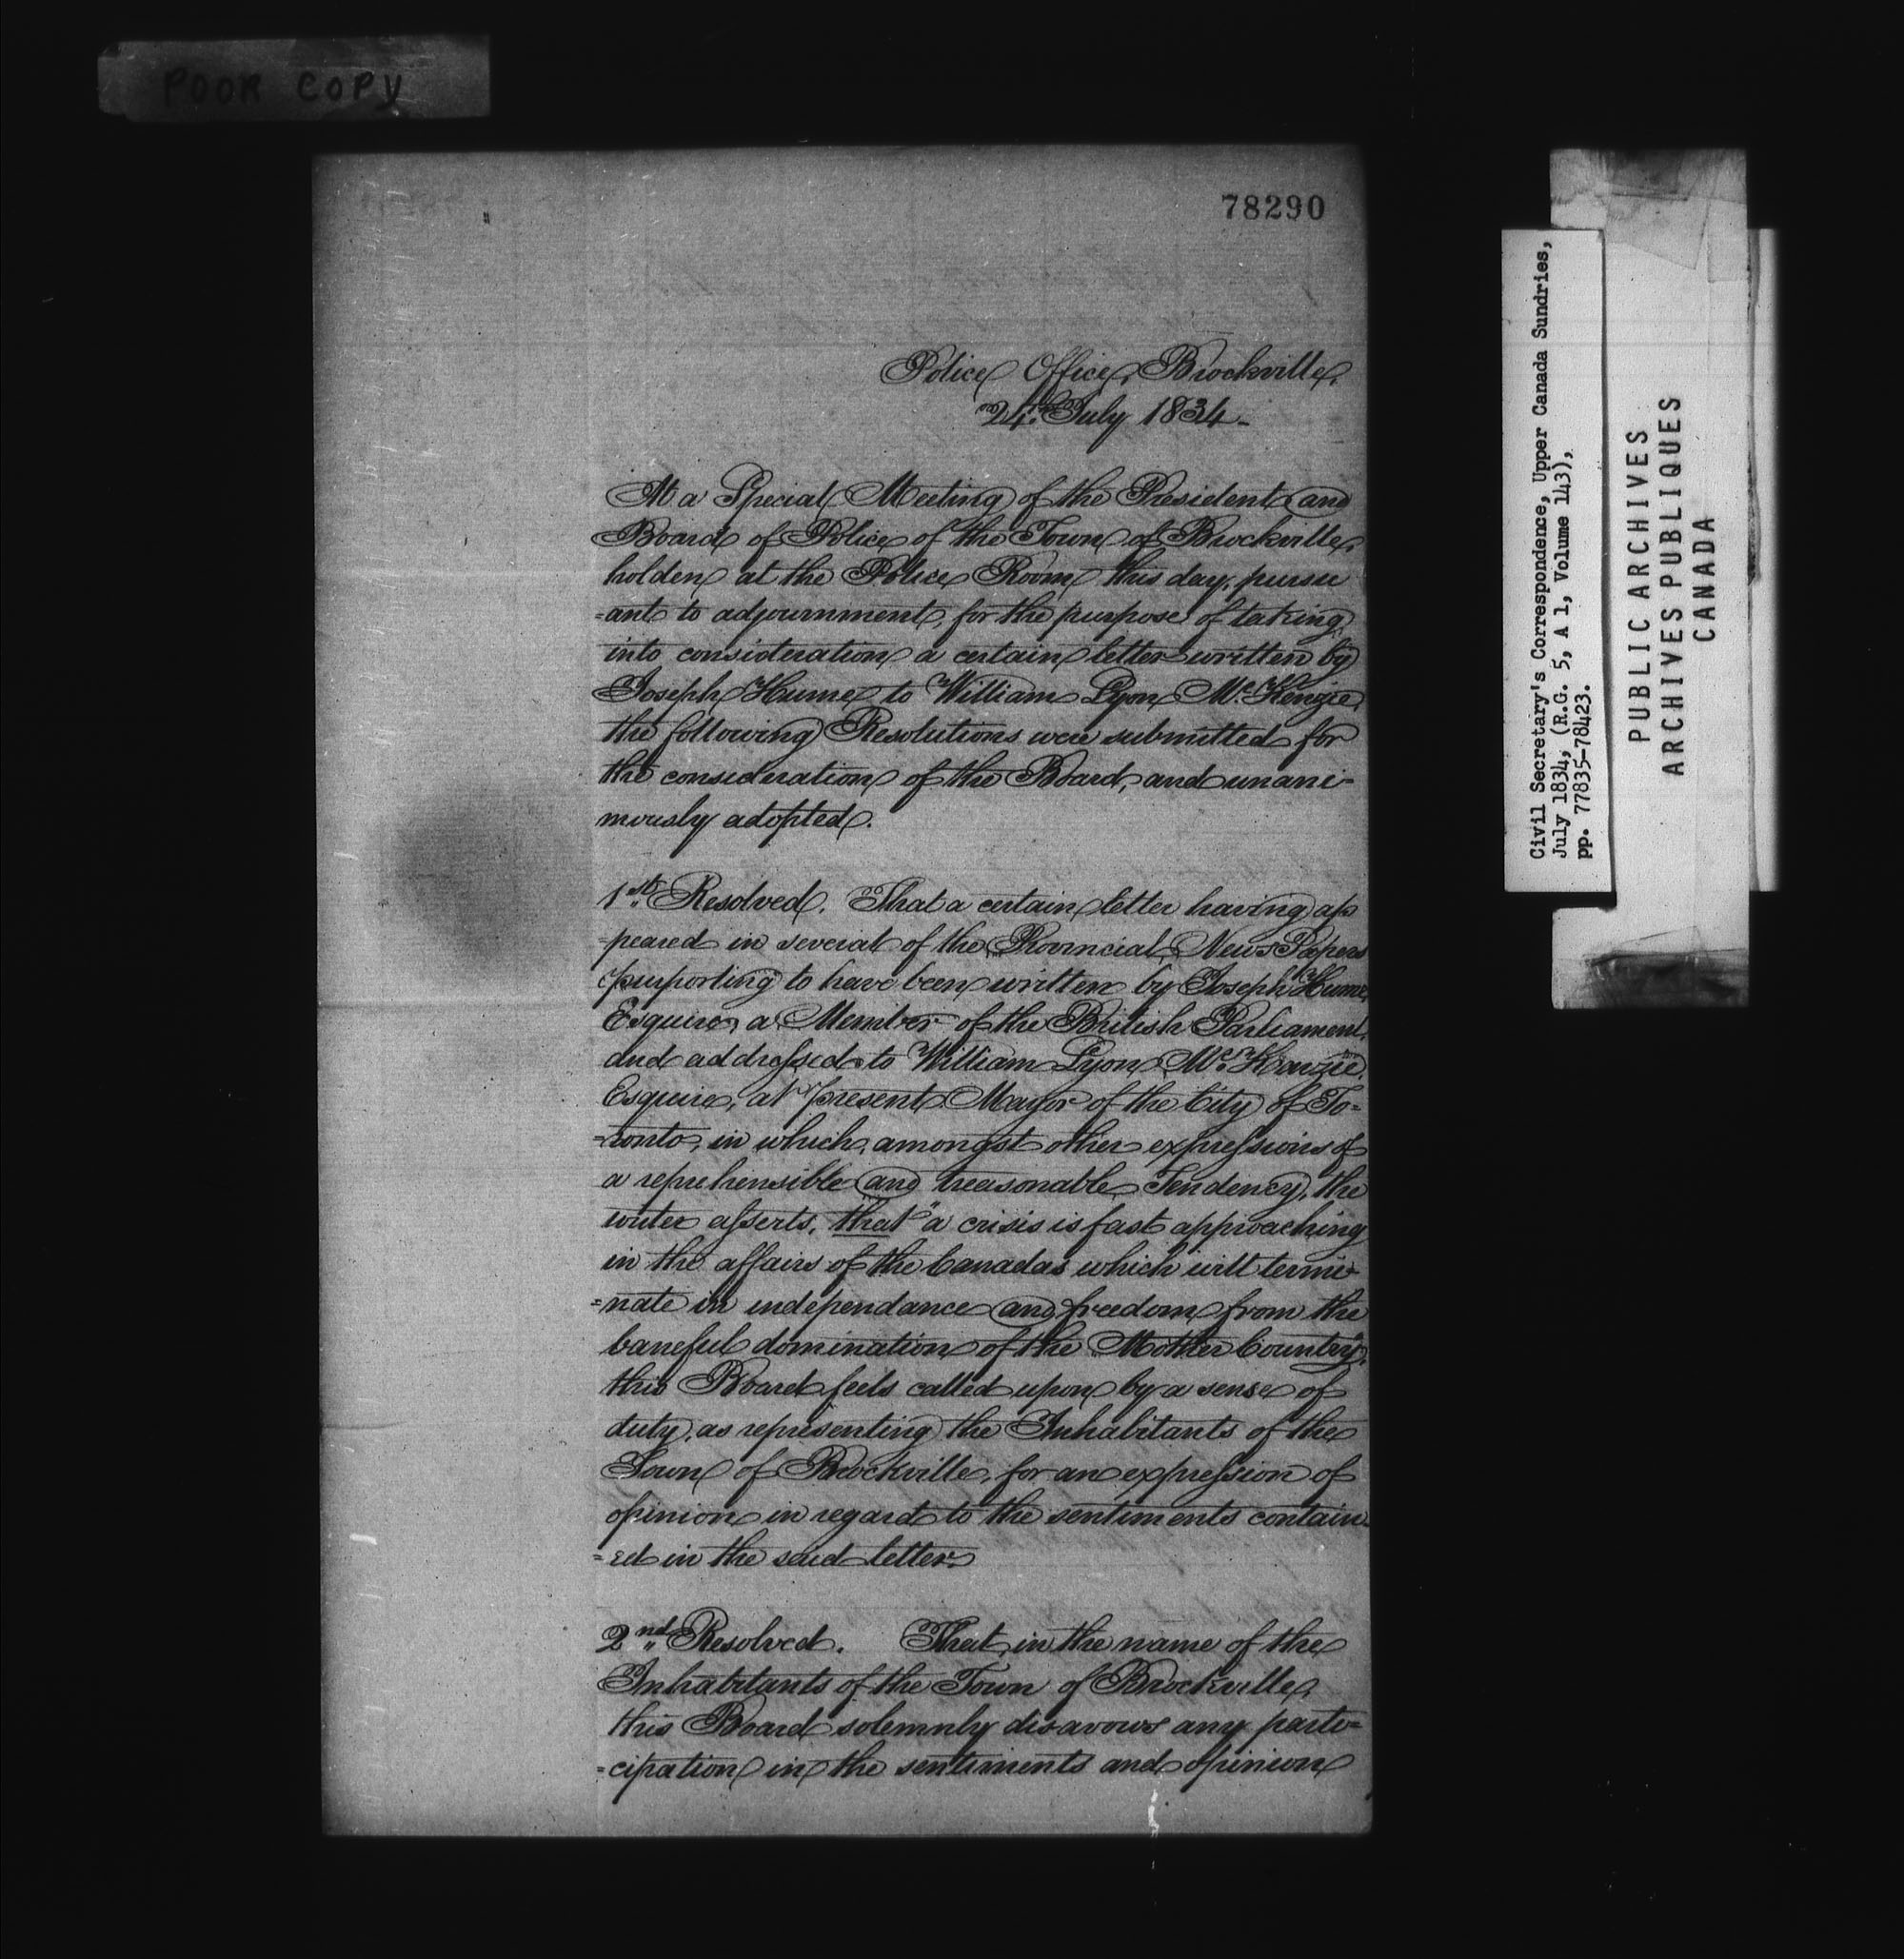 POOR COPY
78290
Police Office, Brockville,
24th July 1834-
At a Special Meeting of the President and
Board of Police of the Town of Brockville,
holden at the Police Room this day, pursu
=ant to adjournment, for the purpose of taking
into consideration a certain letter written by
Joseph Hume to William Lyon McKenzie,
the following Resolutions were submitted for
the consideration of the Board, and unani-
mously adopted.
1st Resolved. That a certain letter having ap
=peared in several of the Provincial News Papers
purporting to have been written by Joseph Hume,
Esquire, a Member of the British Parliament,
and addressed to William Lyon McKenzie,
Esquire, at present Mayor of the City of To=
=ronto, in which, amongst other expressions of
a reprehensible and treasonable Tendency, the
writer asserts, that "a crisis is fast approaching
in the affairs of the Canadas which will termi-
=nate in independance and freedom from the
baneful domination of the Mother Country",
this Board feels called upon by a sense of
duty, as representing the Inhabitants of the
Town of Brockville, for an expression of
opinion in regard to the sentiments contain-
=ed in the said letter.
2nd Resolved. That, in the name of the
Inhabitants of the Town of Brockville,
this Board solemnly disavows any parti=
=cipation in the sentiments and opinion
Civil Secretary's Correspondence, Upper Canada Sundries,
July 1834, (R.G. 5, A 1, Volume 143),
pp. 77835-78423.
PUBLIC ARCHIVES
ARCHIVES PUBLIQUES
CANADA